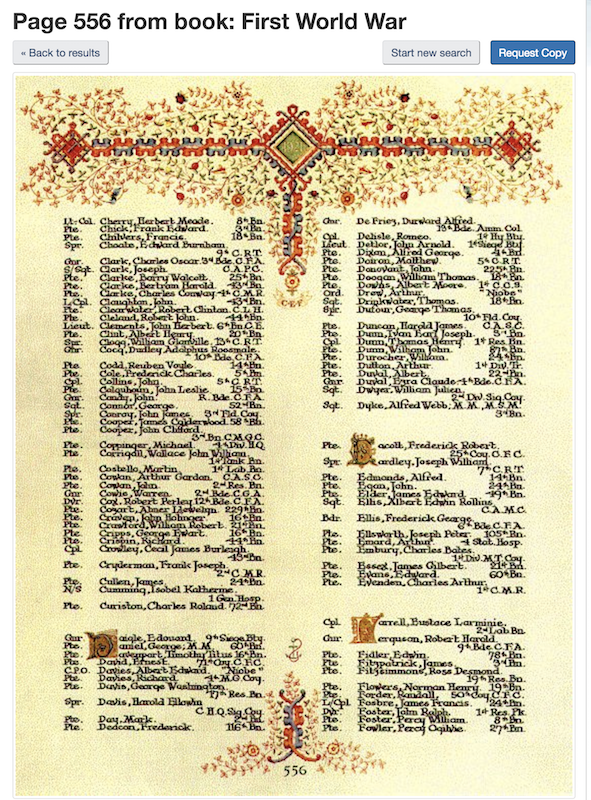 Page 556 from book: First World War
« Back to results
Start new search
Request Copy
1921
Lt-Col. Cherry, Herbert Meade. 8th Bn.
Pte. Chick, Frank Edward. 3rd Bn.
Pte. Chilvers, Francis. 18th Bn.
Spr. Choate, Edward Burnham.
9th C.R.T.
Gnr. Clark, Charles Oscar. 3rd Bde. C.F.A.
S/Sgt. Clark, Joseph. C.A.P.C.
Pte. Clarke, Barry Walcott. 25th Bn.
Pte. Clarke, Bertram Harold. 43rd Bn.
Pte. Clarke, Charles Conway. 4th C.M.R.
L/Cpl. Claughton, John. 43rd Bn.
Pte. Clearwater, Robert Clinton. C.L.H.
Pte. Cleland, Robert John. 44th Bn.
Lieut. Clements, John Herbert. 6th Bn. C.E.
Pte. Clint, Albert Henry. 20th Bn.
Spr. Clogg, William Glanville. 13th C.R.T.
Gnr. Cocq, Dudley Adolphus Roosmale.
10th Bde. C.F.A.
Pte. Codd, Reuben Voyle. 14th Bn.
Pte. Cole, Frederick Charles. 5th Bn.
Cpl. Collins, John. 5th C.R.T.
Pte. Colquhoun, John Leslie. 15th Bn.
Gnr. Condy, John. R. Bde. C.F.A.
Sgt. Connor, George. 52nd Bn.
Spr. Conroy, John James. 3rd Fld. Coy.
Pte. Cooper, James Calderwood. 58th Bn.
Pte. Cooper, John Clifford.
3rd Bn. C.M.G.C.
Pte. Coppinger, Michael. 4th Div. H.Q.
Pte. Corrigall, Wallace John William.
1st Tank Bn.
Pte. Costello, Martin. 1st Lab. Bn.
Pte. Cowan, Arthur Gordon. C.A.S.C.
Pte. Cowan, John. 2nd Res. Bn.
Gnr. Cowie, Warren. 2nd Bde. C.G.A.
Dvr. Cox, Robert Perley. 12th Bde. C.F.A.
Pte. Cozart, Abner Llewelyn. 229th Bn.
Pte. Craven, John Holinger. 16th Bn.
Pte. Crawford, William Robert. 21st Bn.
Pte. Cripps, George Ewart. 16th Bn.
Pte. Crispin, Richard. 44th Bn.
Cpl. Crowley, Cecil James Burleigh.
43rd Bn.
Pte. Cryderman, Frank Joseph.
2nd C.M.R.
Pte. Cullen, James. 24th Bn.
N/S Cumming, Isobel Katherine.
1 Gen. Hosp.
Pte. Curiston, Charles Roland. 72nd Bn.
Gnr. Daigle, Edouard. 9th Siege Bty.
Pte. Daniel, George, M.M. 60th Bn.
Pte. Davenport, Timothy Titus. 16th Bn.
Pte. David, Ernest. 71st Coy. C.F.C.
C.P.O. Davies, Albert Edward. "Niobe"
Pte. Davies, Richard. 4th M.G. Coy.
Pte. Davis, George Washington.
17th Res. Bn.
Spr. Davis, Harold Ellown
C.H.Q. Sig. Coy.
Pte. Day, Mark. 2nd Bn.
Pte. Deacon, Frederick. 116th Bn.
Gnr. De Friez, Durward Alfred.
13th Bde. Amm. Col.
Cpl. Delisle, Romeo. 1st Hy. Bty.
Lieut. Detlor, John Arnold. 1st Siege Bty.
Pte. Dixon, Alfred George. 4th Bn.
Pte. Doiron, Matthew. 5th C.R.T.
Pte. Donovan, John. 225th Bn.
Pte. Doogan, William Thomas. 18th Bn.
Pte. Downs, Albert Moore. 1st C.C.S.
Ord. Drew, Arthur. "Niobe"
Sgt. Drinkwater, Thomas. 18th Bn.
Spr. Dufour, George Thomas.
10th Fld. Coy.
Pte. Duncan, Harold James. C.A.S.C.
Pte. Dunn, Ivan Earl Joseph. 5th Bn.
Cpl. Dunn, Thomas Henry. 1st Res. Bn.
Pte. Dunn, William John. 87th Bn.
Pte. Durocher, William. 24th Bn.
Pte. Dutton, Arthur. 1st Div. Tr.
Pte. Duval, Albert. 22nd Bn.
Gnr. Duval, Ezra Claude. 4th Bde. C.F.A.
Sgt. Dwyer, William Julien.
2nd Div. Sig. Coy.
Sgt. Dyke, Alfred Webb, M.M., M.S.M.
3rd Bn.
Pte. Eacott, Frederick Robert.
25th Coy. C.F.C.
Spr. Eardley, Joseph William.
7th C.R.T.
Pte. Edmonds, Alfred. 14th Bn.
Pte. Egan, John. 24th Bn.
Pte. Elder, James Edward. 49th Bn.
Sgt. Ellis, Albert Edwin Rollins.
C.A.M.C.
Bdr. Ellis, Frederick George.
6th Bde. C.F.A.
Pte. Ellsworth, Joseph Peter. 105th Bn.
Pte. Emard, Arthur. 4 Stat. Hosp.
Pte. Embury, Charles Bales.
1st Div. M.T. Coy.
Pte. Essex, James Gilbert. 21st Bn.
Pte. Evans, Edward. 60th Bn.
Pte. Evenden, Charles Arthur.
1st C.M.R.
Cpl. Farrell, Eustace Larminie.
2nd Lab. Bn.
Gnr. Ferguson, Robert Harold.
9th Bde. C.F.A.
Pte. Fidler, Edwin. 78th Bn.
Pte. Fitzpatrick, James. 3rd Bn.
Pte. Fitzsimmons, Ross Desmond.
19th Res. Bn.
Pte. Flowers, Norman Henry. 19th Bn.
Pte. Forder, Randall. 50th Coy. C.F.C.
L/Cpl. Fosbre, James Francis. 24th Bn.
Dvr. Foster, John Ralph. 1st Res. Pk.
Pte. Foster, Percy William. 8th Bn.
Pte. Fowler, Percy Ogilbe. 27th Bn.
556